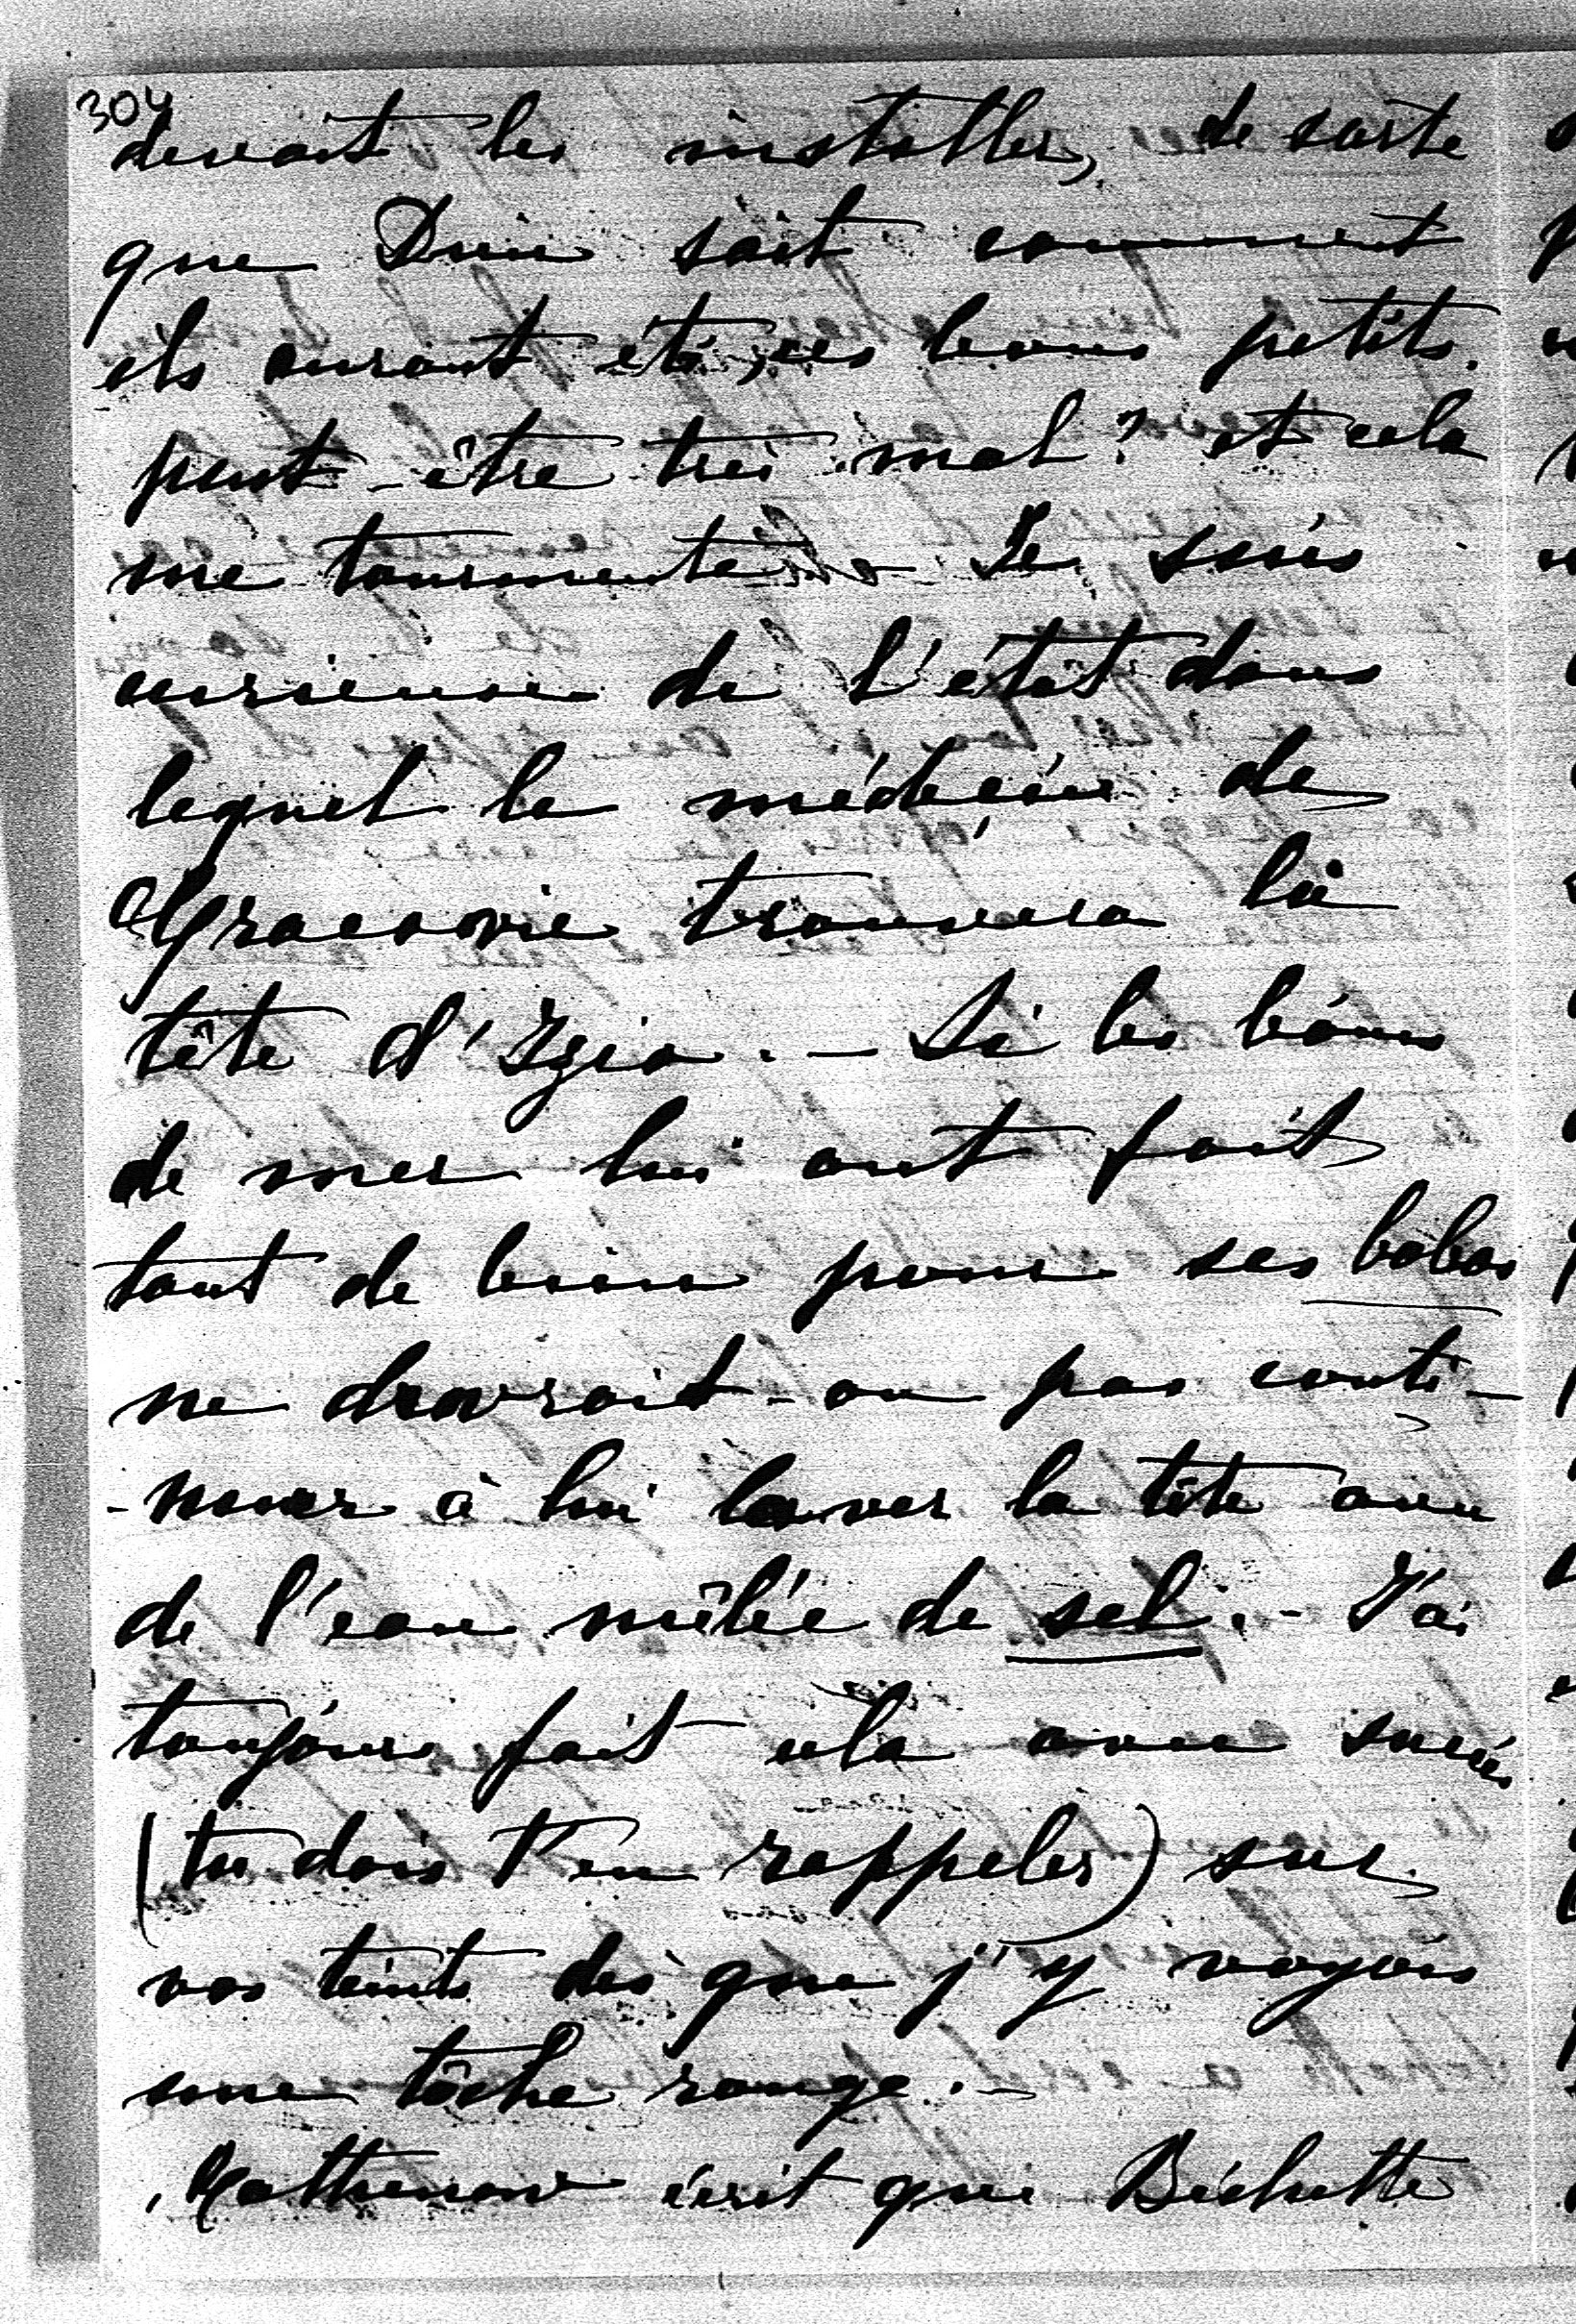 304
devait les installer, de sorte
que Dieu sait comment
ils auront été, ces bons petits.
peut-être très mal? et cela
me tourmente. - Je suis
curieuse de l'état dans
lequel le médecin de
Cracovie trouvera la
tête d'Izio. - Si les bains
de mer lui ont fait
tant de bien pour ses bobos
ne devrait-on pas conti-
-nuer à lui laver la tête avec
de l'eau mêlée de sel. - J'ai
toujours fait cela avec succès
(tu dois t'en rappeler) sur
vos teints dès que j'y voyais
une tâche rouge. -
écrit que Bichette